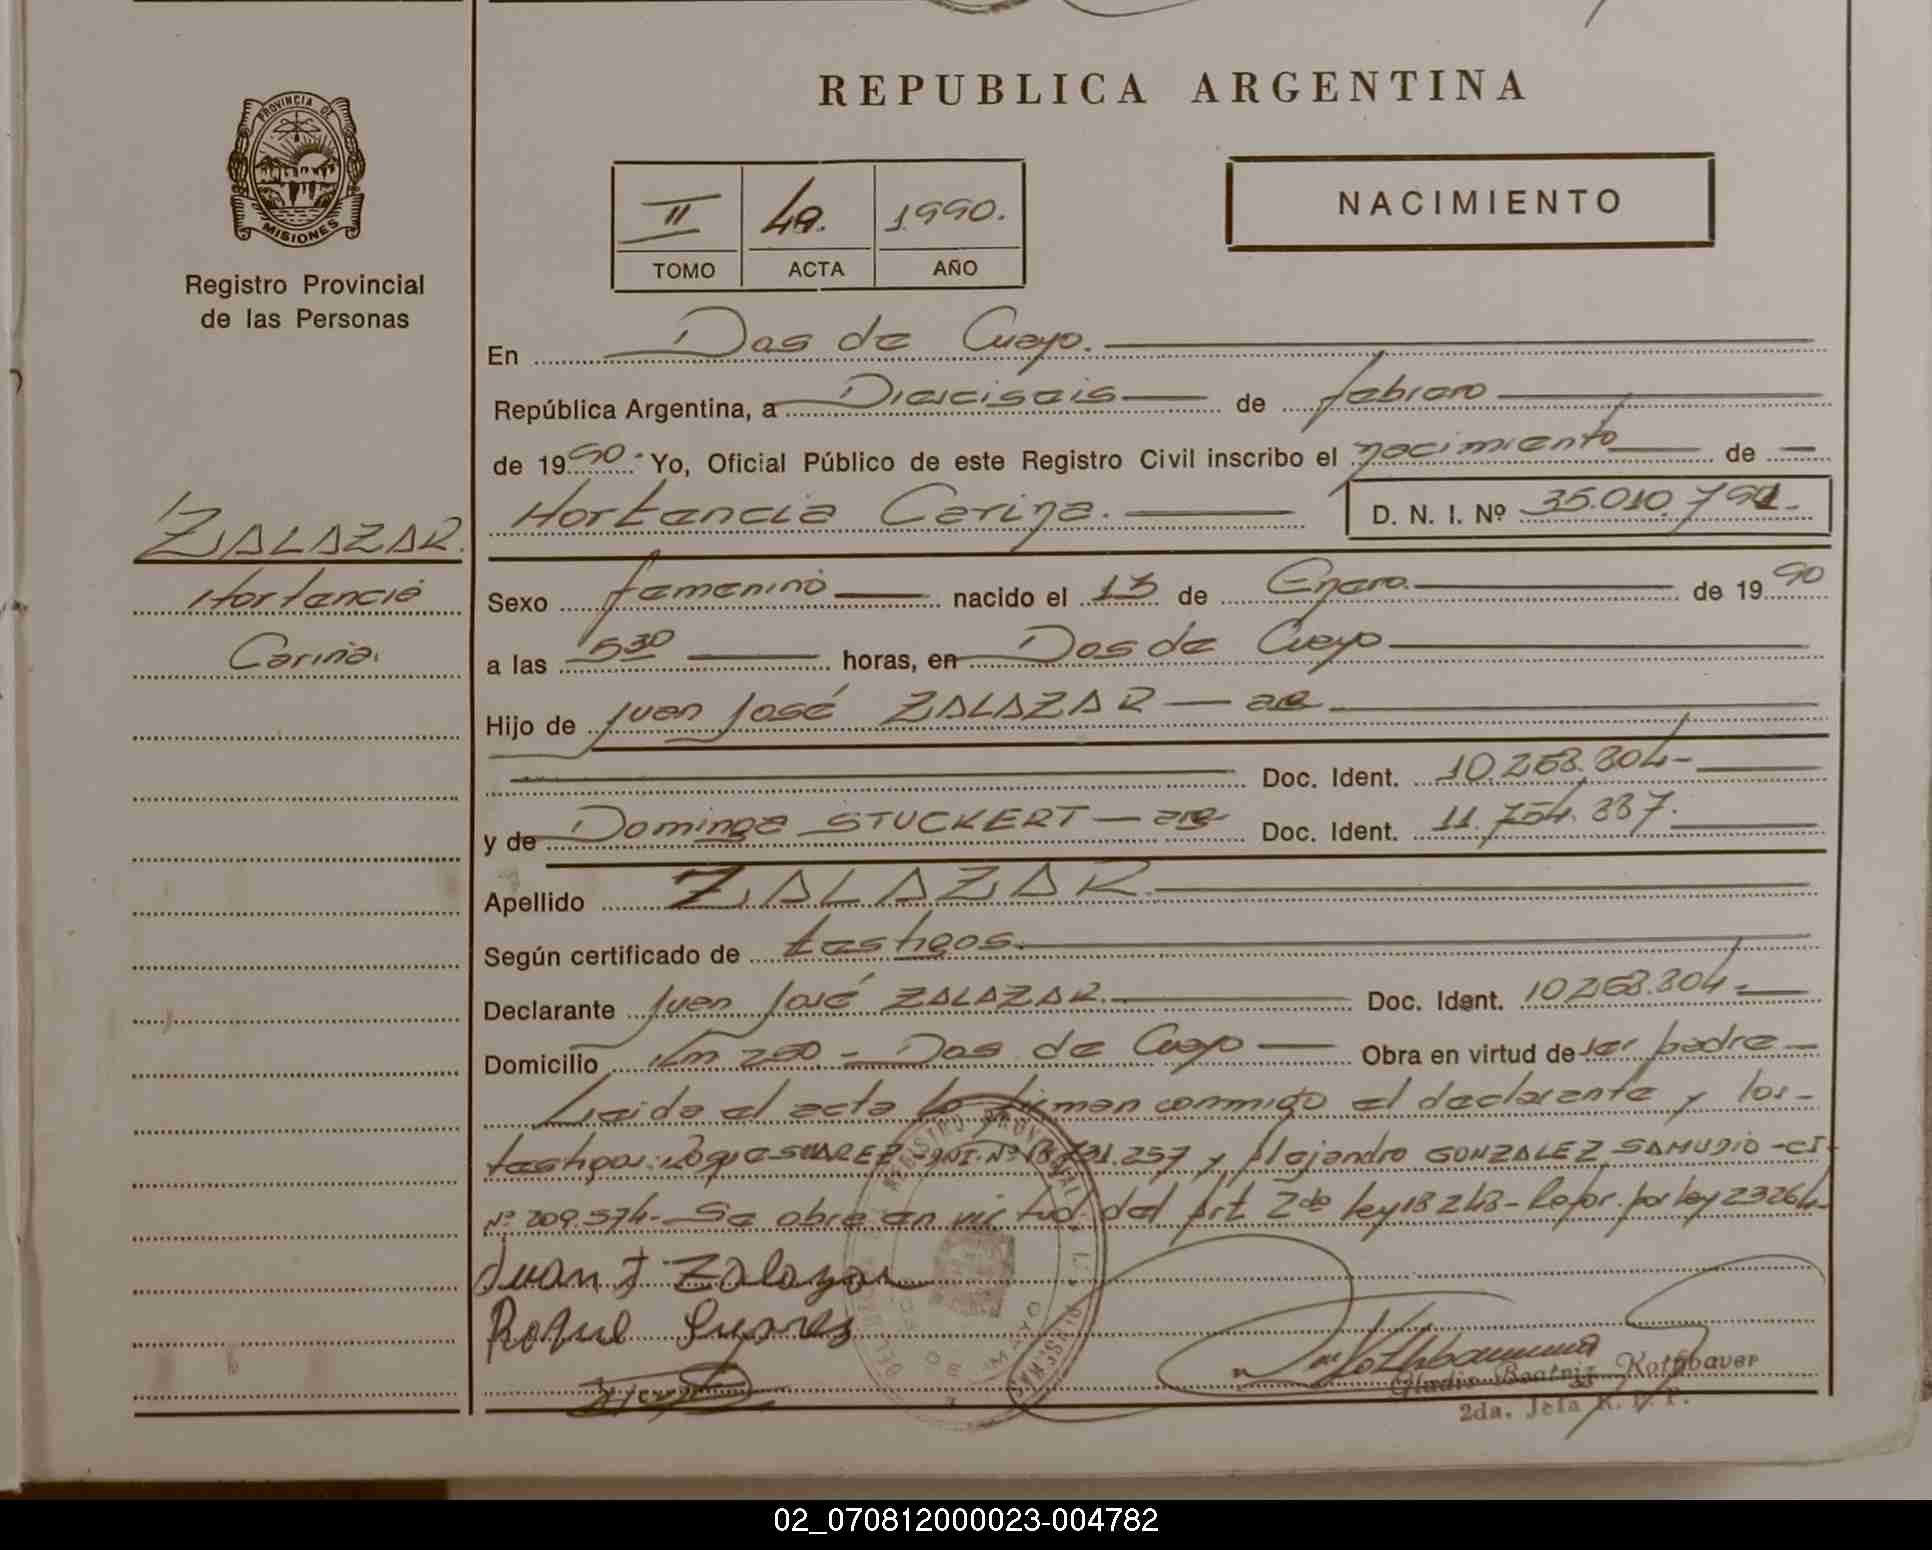 REPUBLICA ARGENTINA
PROVINCIA DE
MISIONES
Registro Provincial
de las Personas
II 1990.
TOMO ACTA AÑO
NACIMIENTO
En Dos de Mayo.
República Argentina, a Dieciseis de febrero
de 1990. Yo, Oficial Público de este Registro Civil inscribo el nacimiento de
Hortencia Carina. D. N. I. Nº 35.010.791.
ZALAZAR.
Hortencia
Carina.
Sexo femenino nacido el 13 de Enero. de 1990
a las 5 30 horas, en Dos de Mayo
Hijo de Juan José ZALAZAR — arg
Doc. Ident. 10.268.804-
y de Dominga STUCKERT — arg Doc. Ident. 11.754.837.
Apellido ZALAZAR.
Según certificado de testigos.
Declarante Juan José ZALAZAR. Doc. Ident. 10.268.804.
Domicilio Km 250 - Dos de Mayo Obra en virtud de ser padre
Leida el acta la firman conmigo el declarante y los-
testigos: Roque SUAREZ - DNI. Nº 18.791.257 y Alejandro GONZALEZ SAMUDIO - CI
Nº 209.574- Se obra en virtud del Art 2do ley 18248- Refor. por ley 23264-
Juan J Zalazar
Roque Suares
Gladis Beatriz Rothbaver
2da. Jefa R. P. P.
02_070812000023-004782